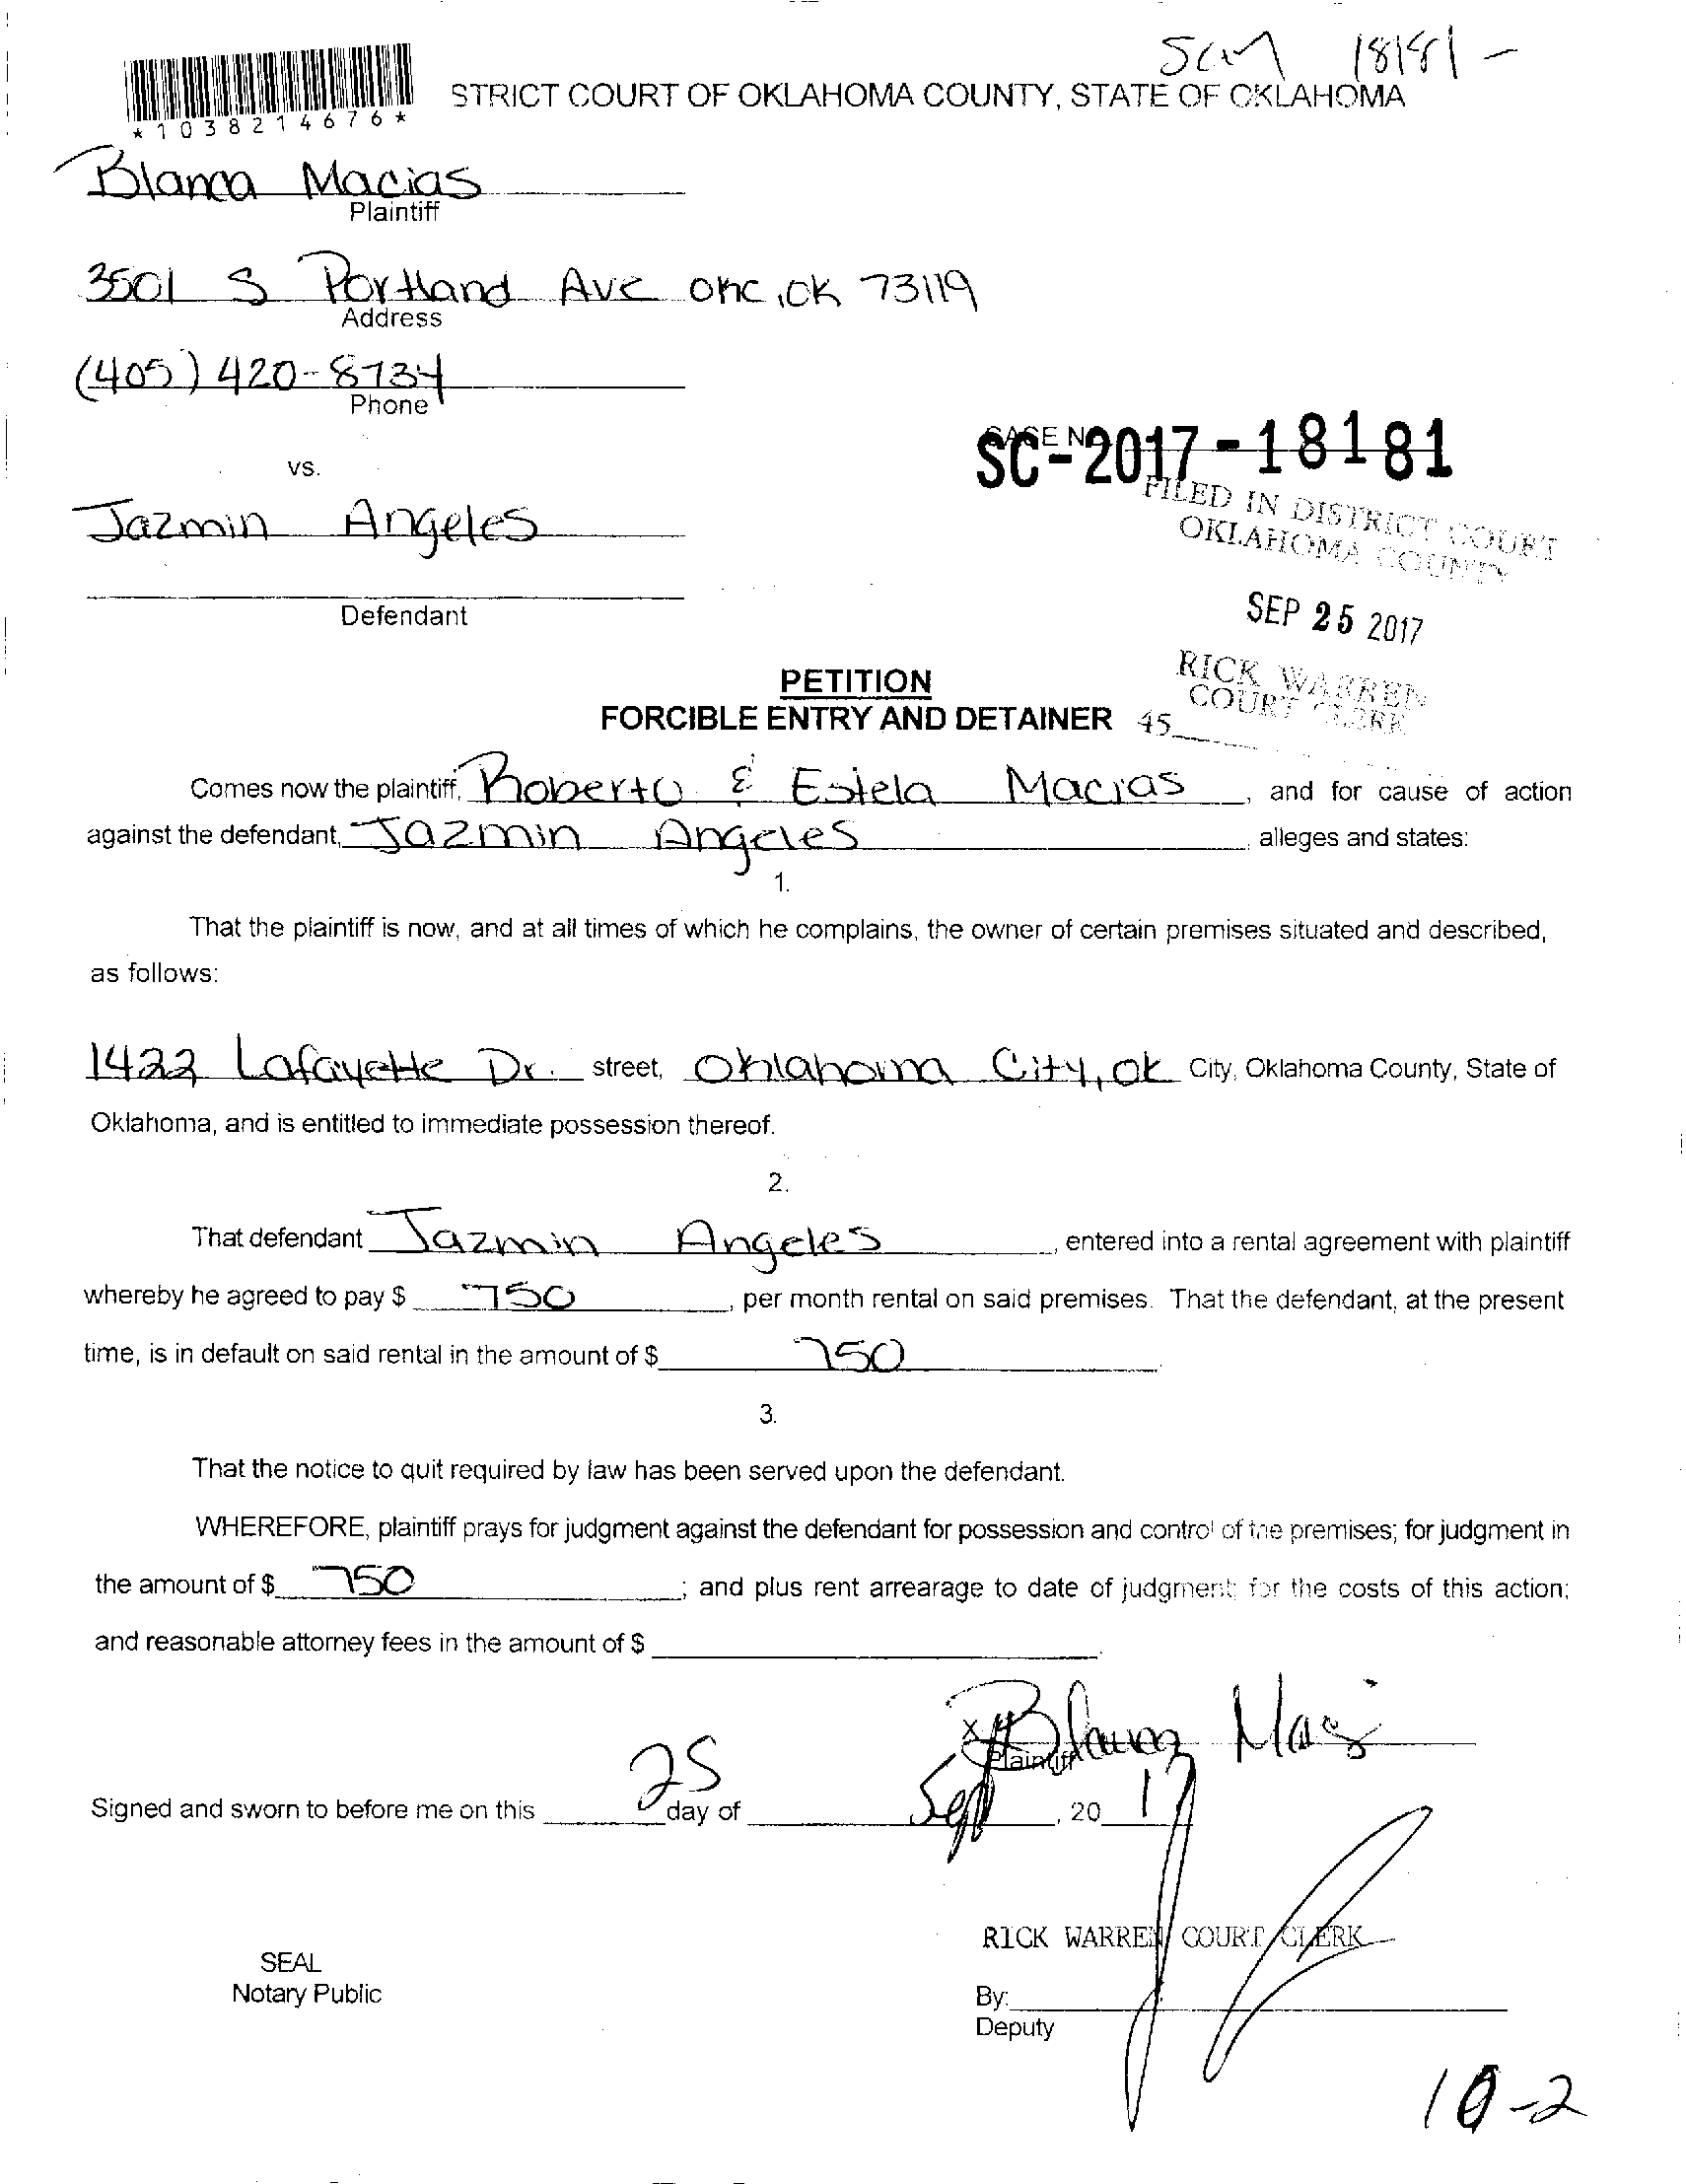 SCM 18181 -
*1038214676*
STRICT COURT OF OKLAHOMA COUNTY, STATE OF OKLAHOMA
Blanca Macias
Plaintiff
3501 S Portland Ave OKC, OK 73119
Address
(405) 420-8734
Phone
CASE N
SC-2017-18181
vs.
FILED IN DISTRICT COURT
OKLAHOMA COUNTY
Jazmin Angeles
Defendant
SEP 25 2017
RICK WARREN
COURT CLERK
45
PETITION
FORCIBLE ENTRY AND DETAINER
Comes now the plaintiff, Roberto & Estela Macias, and for cause of action
against the defendant, Jazmin Angeles, alleges and states:
1.
That the plaintiff is now, and at all times of which he complains, the owner of certain premises situated and described,
as follows:
1422 Lafayette Dr. street, Oklahoma City, OK City, Oklahoma County, State of
Oklahoma, and is entitled to immediate possession thereof.
2.
That defendant Jazmin Angeles, entered into a rental agreement with plaintiff
whereby he agreed to pay $ 750, per month rental on said premises. That the defendant, at the present
time, is in default on said rental in the amount of $ 750.
3.
That the notice to quit required by law has been served upon the defendant.
WHEREFORE, plaintiff prays for judgment against the defendant for possession and control of the premises; for judgment in
the amount of $ 750; and plus rent arrearage to date of judgment; for the costs of this action;
and reasonable attorney fees in the amount of $ .
X Blanca
Plaintiff
Signed and sworn to before me on this 25 day of Sep, 20 17
RICK WARREN COURT CLERK
SEAL
Notary Public
By:
Deputy
10-2